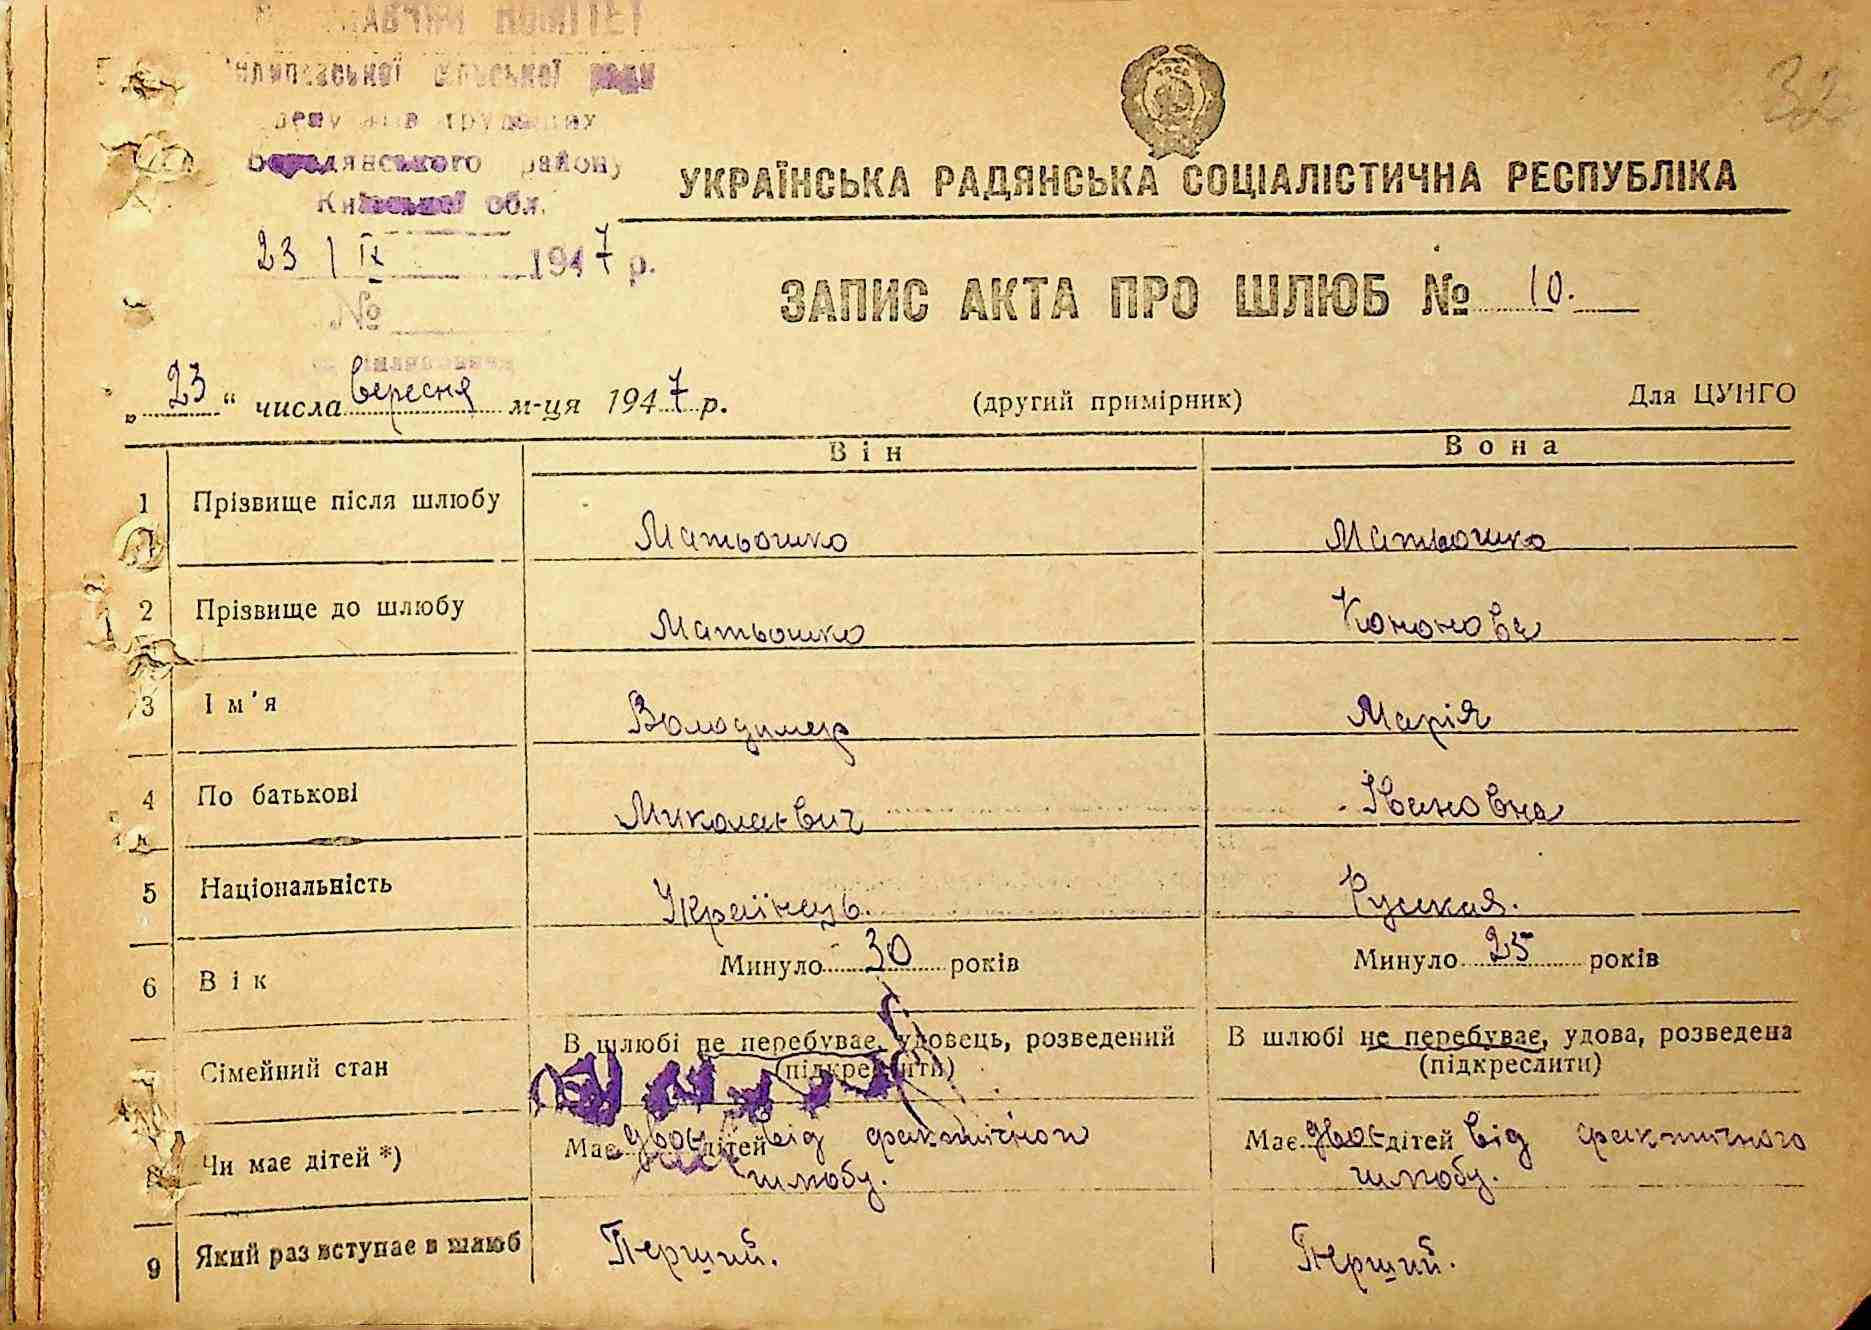 КОМІТЕТ
сільської ради
Бородянського району
Київської обл.
23 / IX 1947 р.
№
32
УКРАЇНСЬКА РАДЯНСЬКА СОЦІАЛІСТИЧНА РЕСПУБЛІКА
ЗАПИС АКТА ПРО ШЛЮБ № 10.
„23“ числа вересня м-ця 1947 р. (другий примірник) Для ЦУНГО
Він Вона
1 Прізвище після шлюбу Матьошко Матьошко
2 Прізвище до шлюбу Матьошко Кононова
3 Ім'я Володимер Марія
4 По батькові Миколаєвич Івановна
5 Національність Українець. Руская.
6 Вік Минуло 30 років Минуло 25 років
7 Сімейний стан В шлюбі не перебуває, удовець, розведений (підкреслити) В шлюбі не перебуває, удова, розведена (підкреслити)
8 Чи має дітей *) Має двоє дітей від фактичного шлюбу. Має двоє дітей від фактичного шлюбу.
9 Який раз вступає в шлюб Перший. Перший.